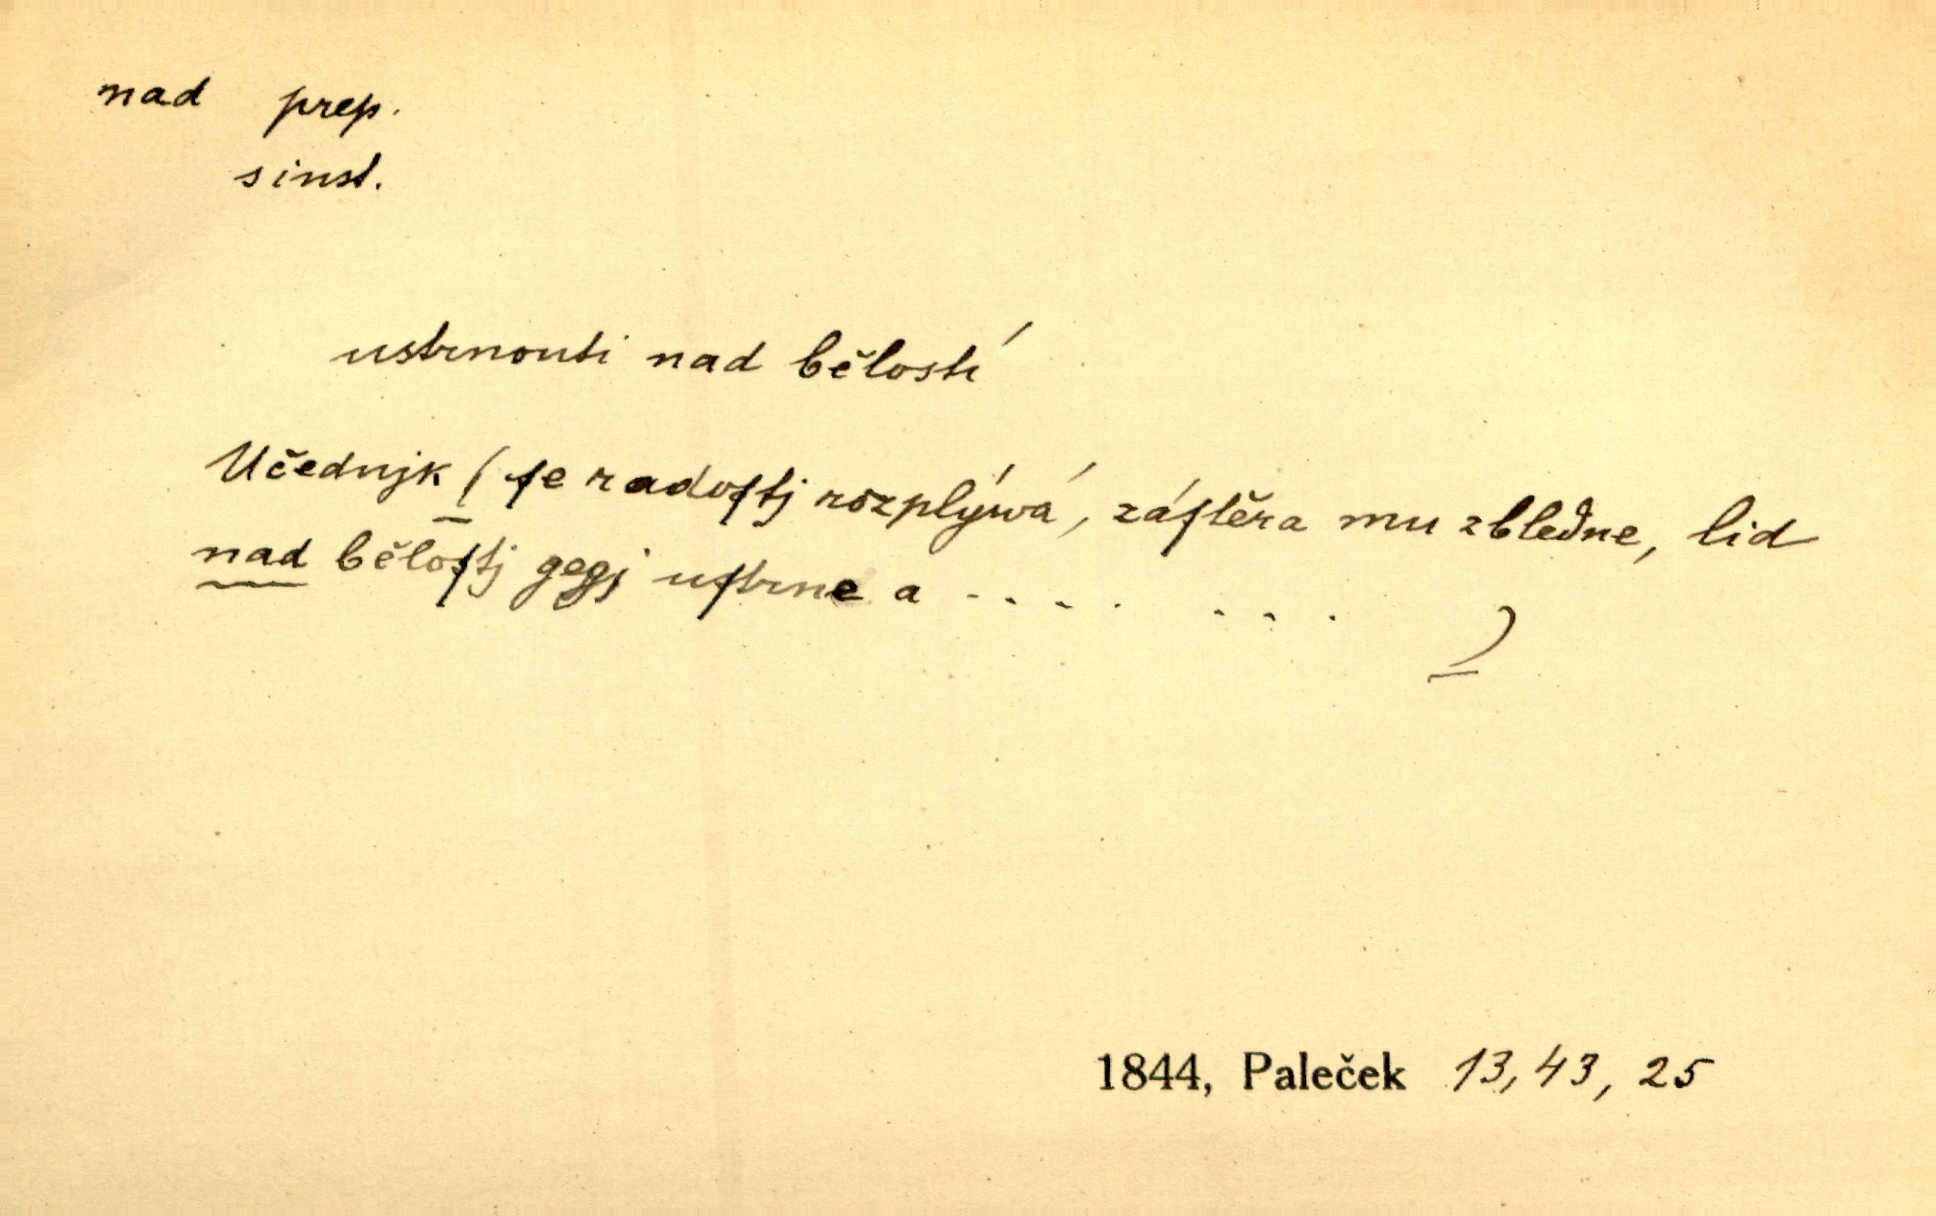 nad prep.
s inst.
ustrnouti nad bělostí
Učednjk (ſe radoſtj rozplývá, záſtěra mu zbledne, lid
nad běloſtj gegj uſtrne a .... ... )
1844, Paleček 13, 43, 25